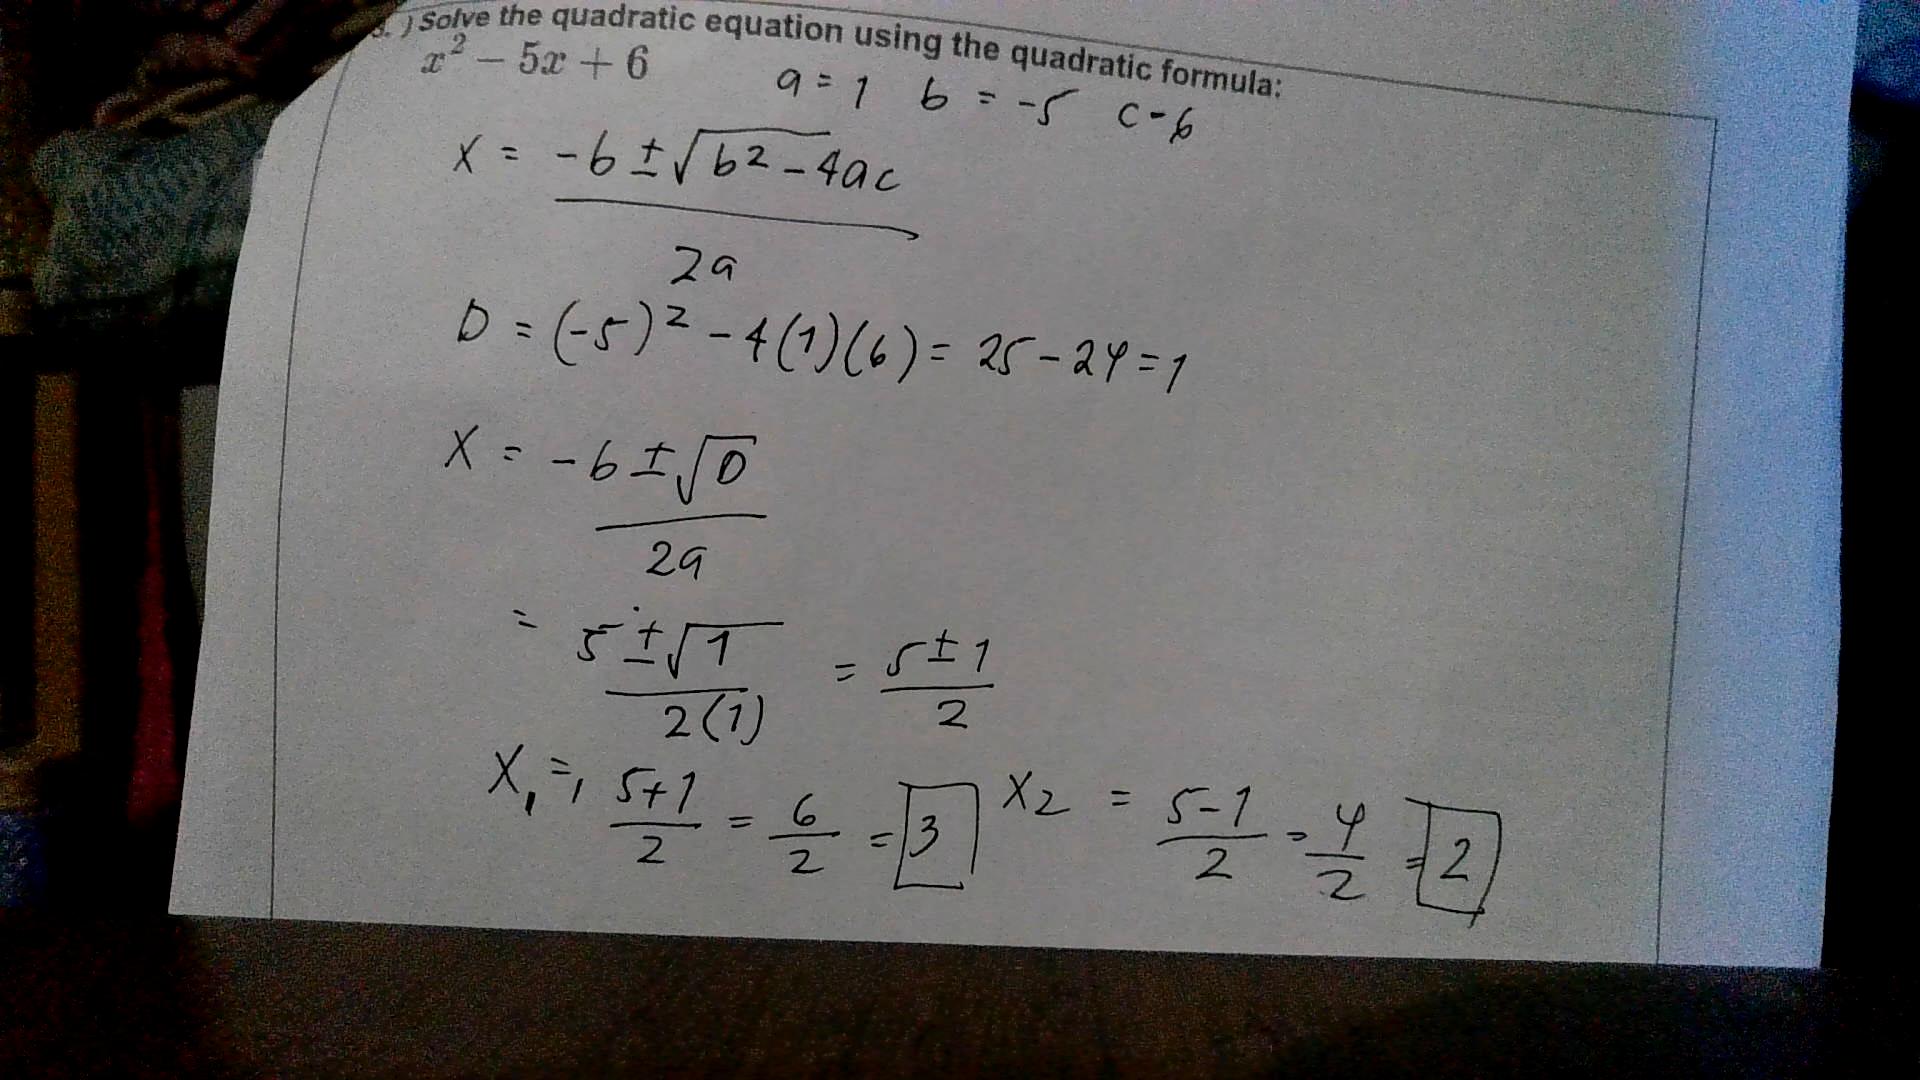 3. ) Solve the quadratic equation using the quadratic formula:
x² − 5x + 6
a = 1 b = -5 c - 6
x = -b ± √b² - 4ac
2a
D = (-5)² - 4(1)(6) = 25 - 24 = 1
x = -b ± √D
2a
= 5 ± √1 = 5 ± 1
2(1) 2
x₁ = 5+1 = 6 = 3 x₂ = 5-1 = 4 = 2
2 2 2 2